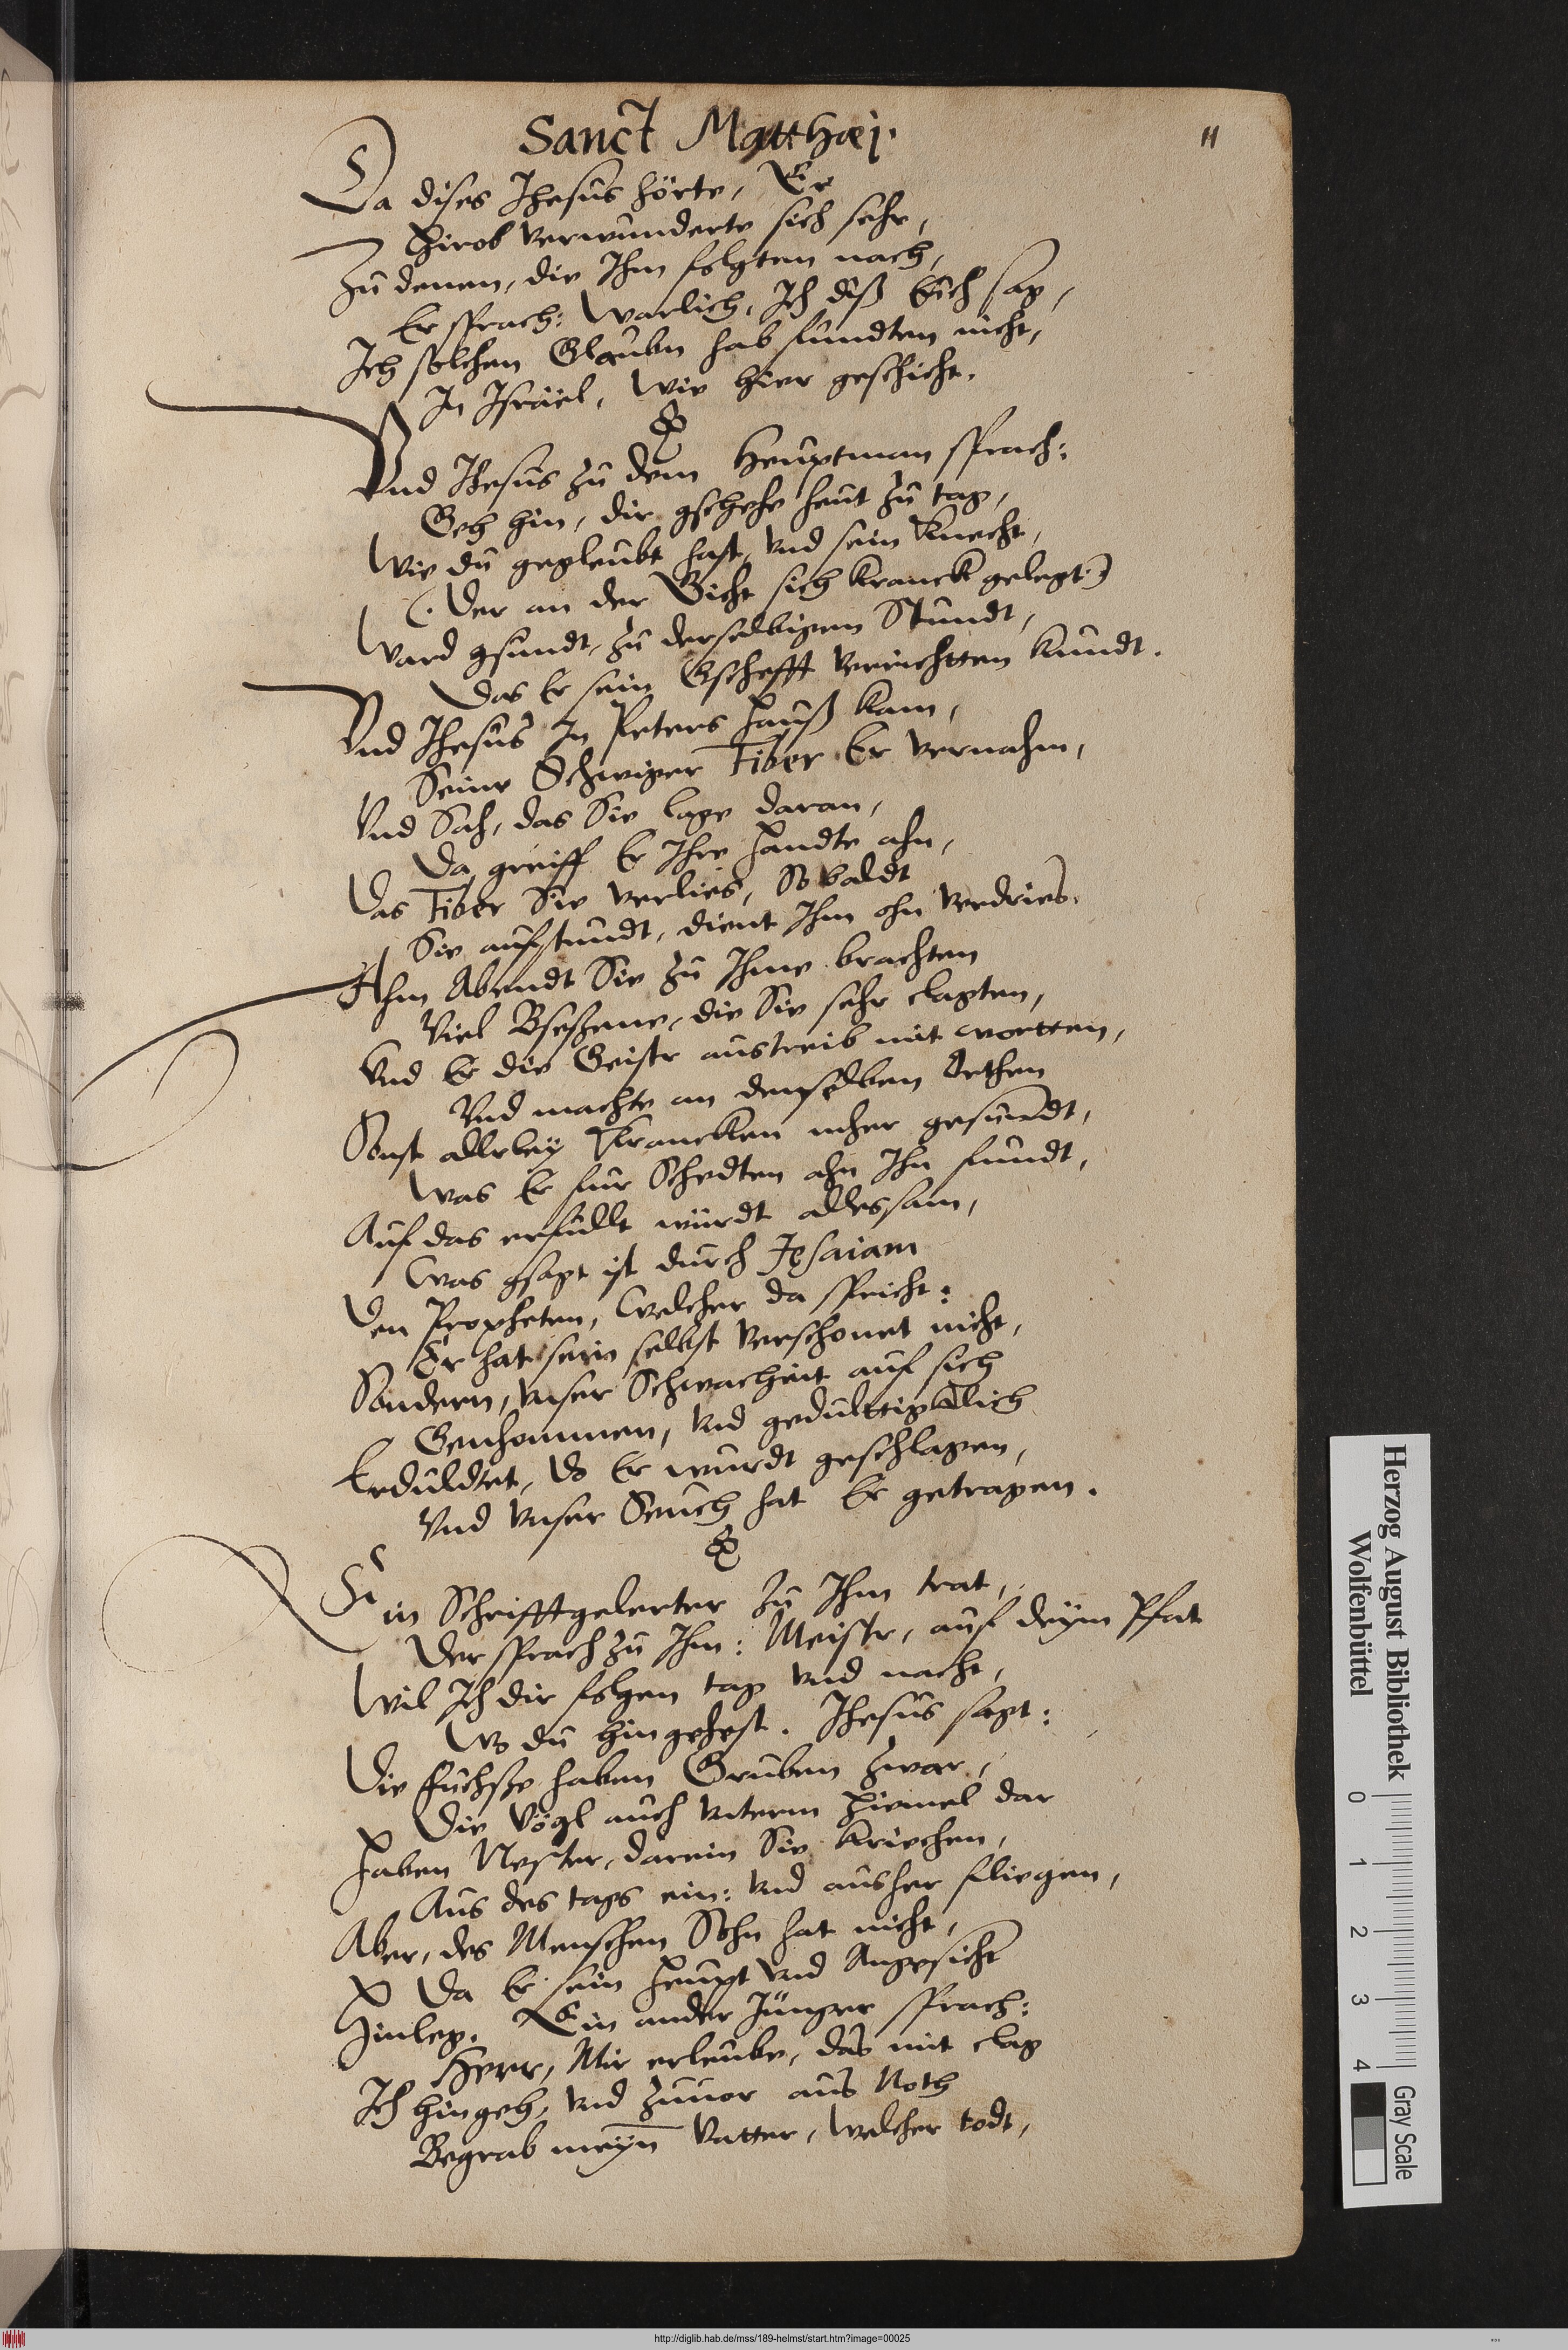 Sanct Matthæi.
11
Da dises Jhesus hörte, Er
Hirob verwunderte sich sehr,
Zu denen, die Jhm folgten nach,
Er sprach: Warlich, Jch diß Euch sag,
Jch solchen Glauben hab fundten nicht,
Jn Jsräel, wie hier geschicht.
Vnd Jhesus zu dem Heuptman sprach:
Geh hin, dir gschehe heut zu tag,
Wie du gegleubt hast, vnd sein Knecht,
(Der an der Gicht sich kranck gelegt)
Ward gsundt, zu derselbigen Stundt,
Das Er sein Gschefft verrichtten kundt.
Vnd Jhesus Jn Peters Hauß kam,
Seine Schwiger Fiber Er vernahm,
Vnd Sah, das Sie lage daran,
Da greiff Er Jhre Handte ahn,
Das Fiber Sie verlies, So baldt
Sie aufstundt, dient Jhm ohn verdries.
Ahm Abendt Sie zu Jhme brachten
Viel Bseßene, die Sie sehr clagten,
Vnd Er die Geistr austreib mit wortten,
Vnd machte an denselben Orthen
Sonst allrley Krancken mher gesundt,
Was Er fur Schedten ahn Jhn fundt,
Auf das erfüllt würdt allessam,
Was gsagt ist durch Jesaiam
Den Propheten, welcher da spricht:
Er hat sein selbst verschonet nicht,
Sondern, vnser Schwacheit auf sich
Genhommen, vnd gedulttigklich
Erduldtet, do Er wurdt geschlagen,
Vnd vnser Seuch hat Er getragen.
Ein Schrifftgelerter zu Jhm trat,
Der sprach zu Jhm: Meistr, auf deym Pfat
Wil Jch dir folgen tag vnd nacht,
Wo du hin gehest. Jhesus sagt:
Die fuchße haben Gruben zwar,
Die Vögl auch vnterm Himel dar
Haben Nester, darein Sie kriechen,
Aus des tags ein: vnd ausher fliegen,
Aber, des Menschen Sohn hat nicht,
Da Er sein Heupt vnd Angesicht
Hinleg. Ein ander Jünger sprach:
Herr, Mir erleube, das mit clag
Jch hingeh, vnd zuuor aus Noth
Begrab meyn Vatter, welcher todt,
Herzog August Bibliothek
Wolfenbüttel
0 1 2 3 4
Gray Scale
http://diglib.hab.de/mss/189-helmst/start.htm?image=00025